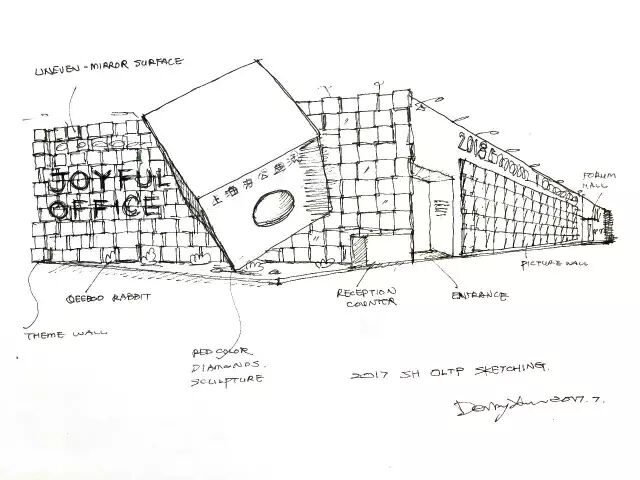 UNEVEN-MIRROR SURFACE
JOYFUL
OFFICE
上海
公
FORUM
HALL
PICTURE WALL
QEEBOO RABBIT
RECEPTION
COUNTER
ENTRANCE
THEME WALL
RED COLOR
DIAMONDS.
SCULPTURE
2017 SH OLTP SKETCHING.
2017.7.